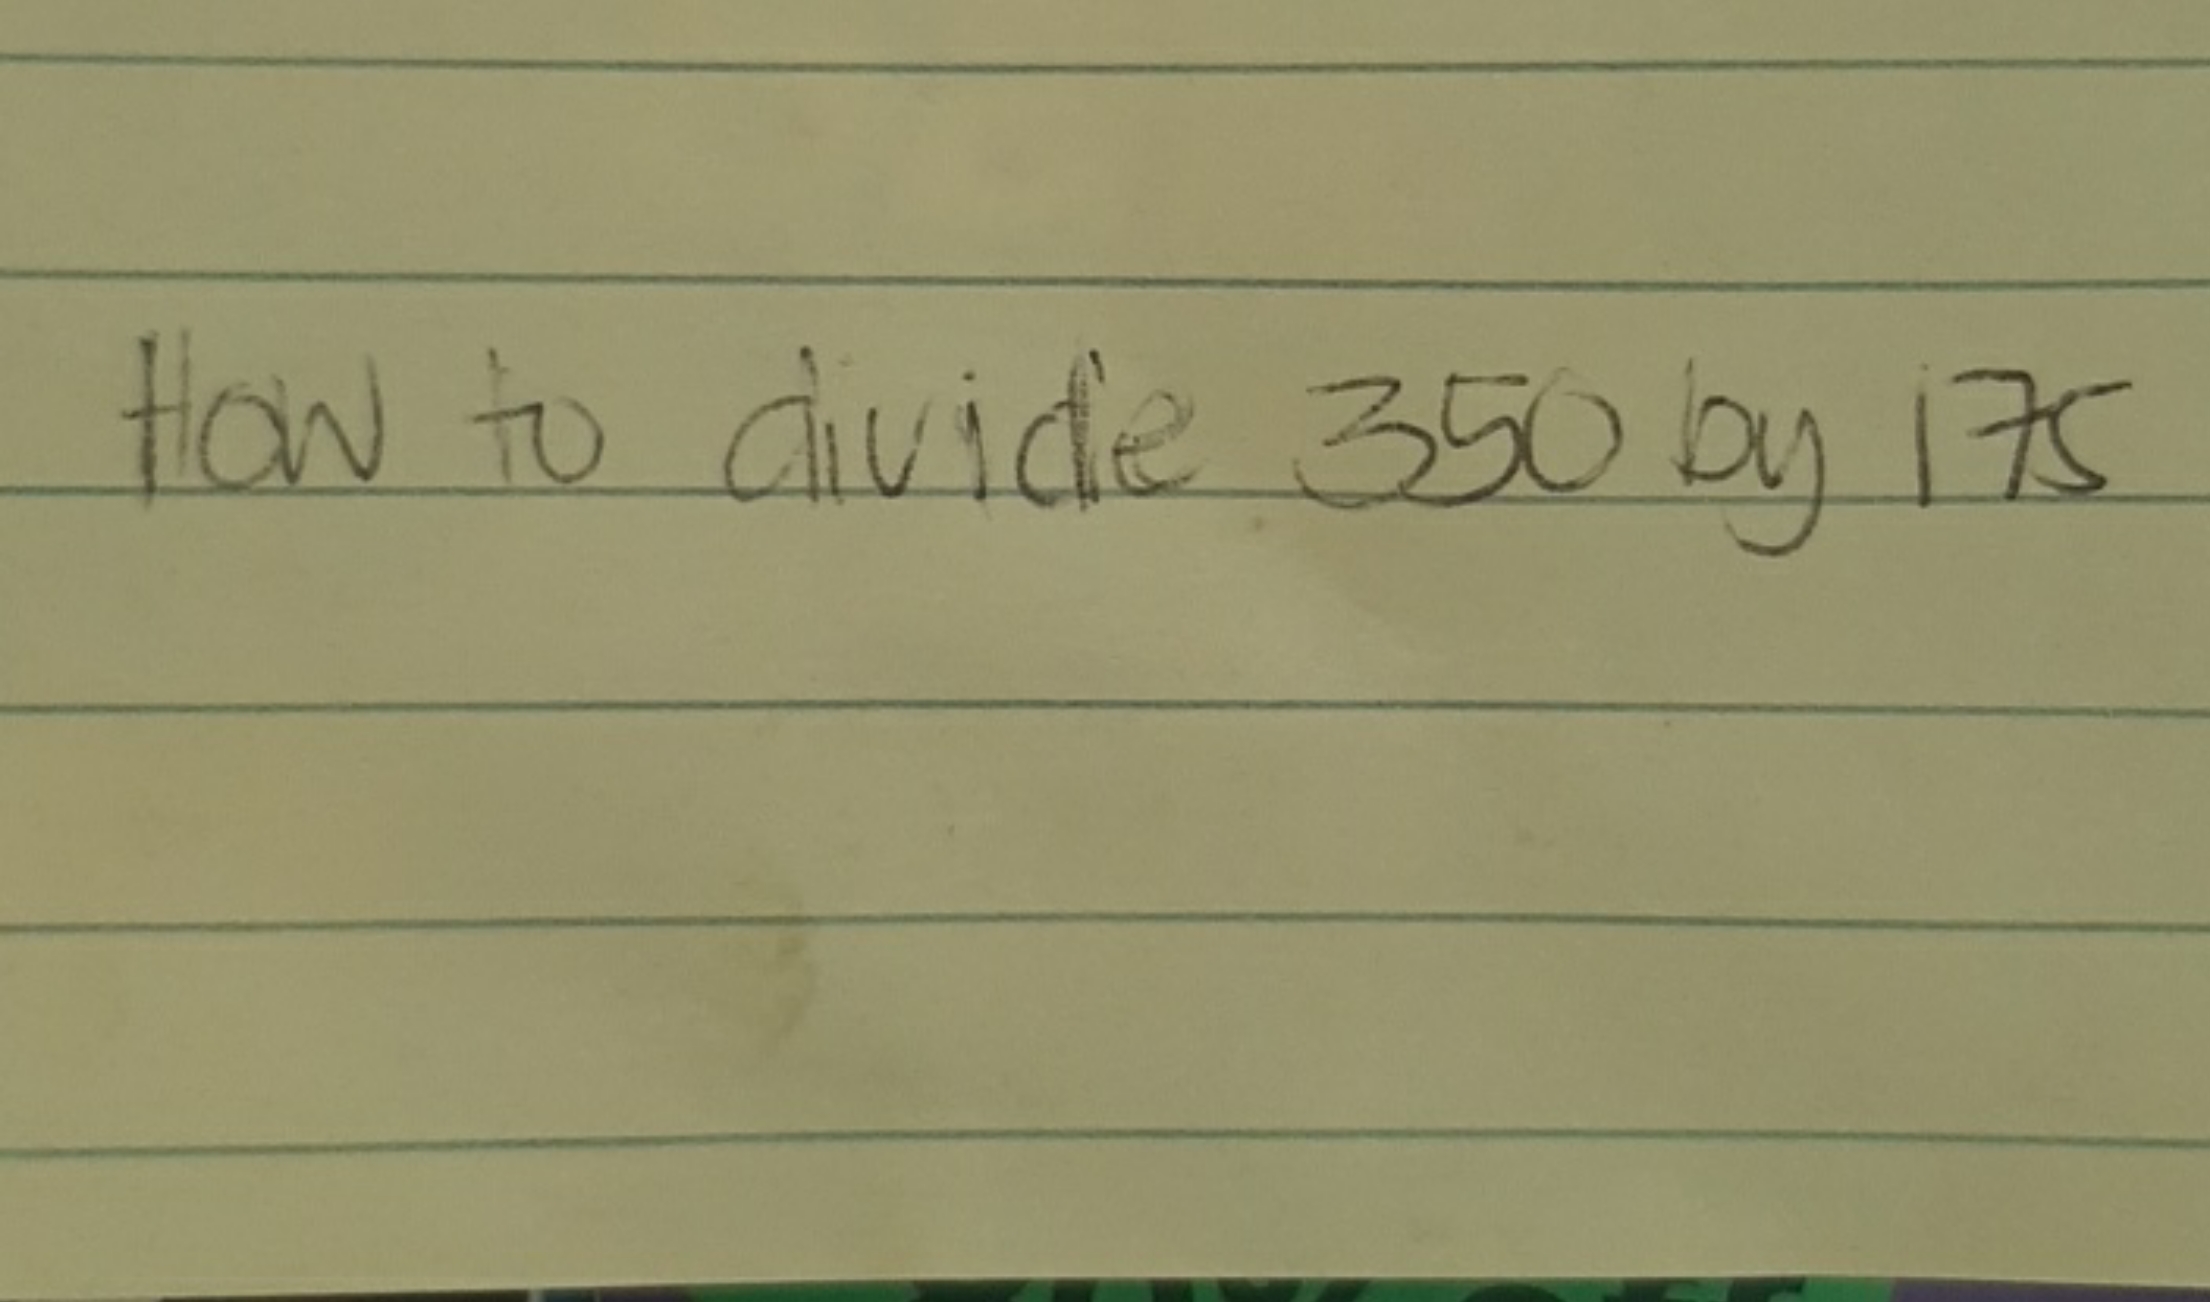 How to divide 350 by 175